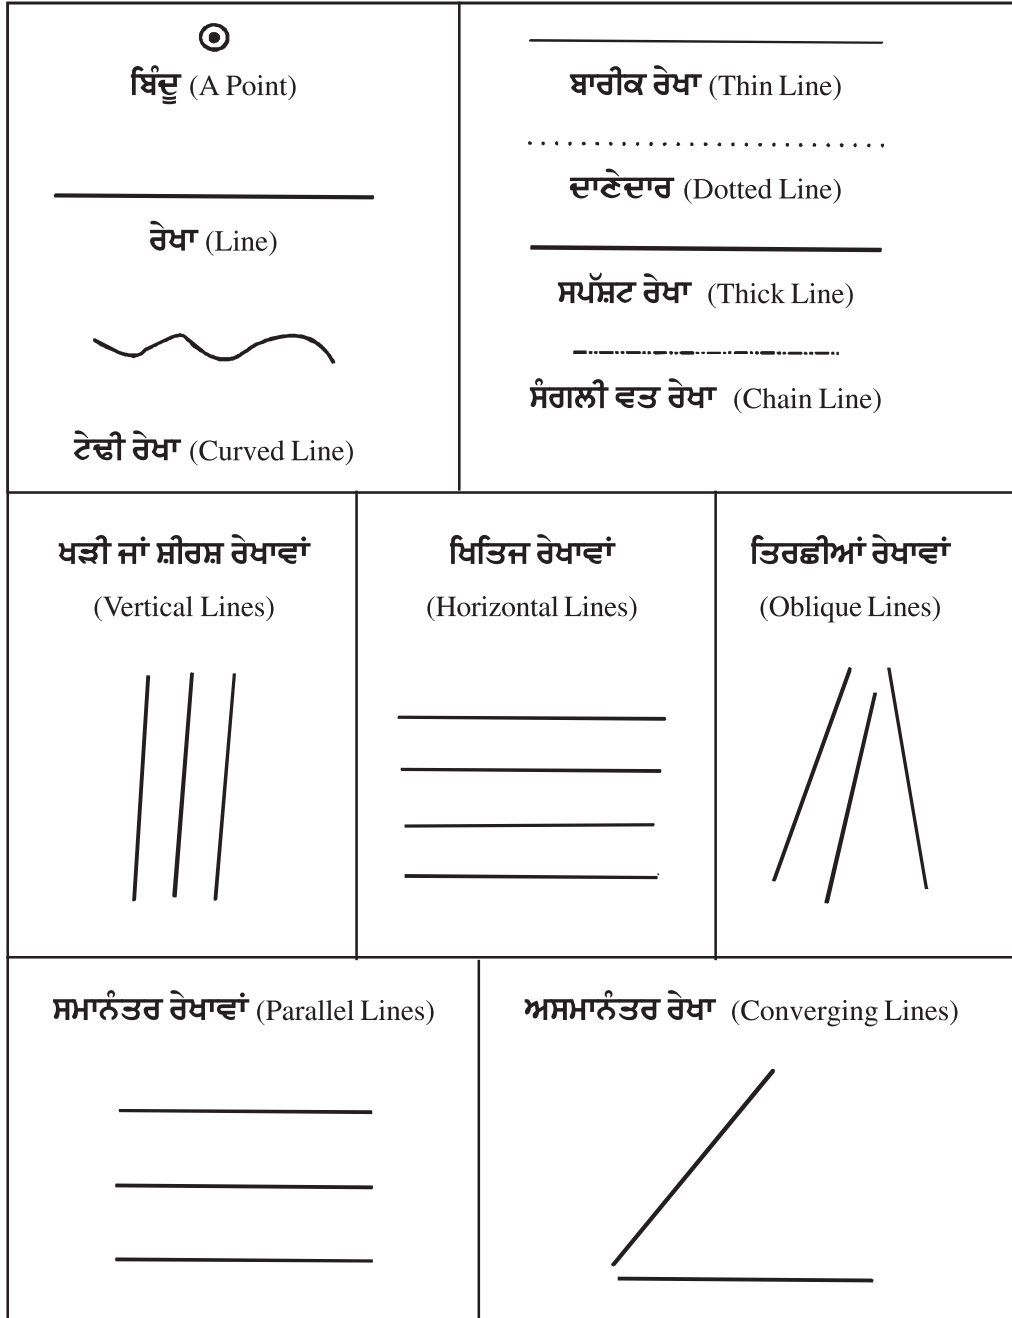 ਬਿੰਦੂ (A Point)
ਰੇਖਾ (Line)
ਟੇਢੀ ਰੇਖਾ (Curved Line)
ਬਾਰੀਕ ਰੇਖਾ (Thin Line)
ਦਾਣੇਦਾਰ (Dotted Line)
ਸਪੱਸ਼ਟ ਰੇਖਾ (Thick Line)
ਸੰਗਲੀ ਵਤ ਰੇਖਾ (Chain Line)
ਖੜੀ ਜਾਂ ਸ਼ੀਰਸ਼ ਰੇਖਾਵਾਂ
(Vertical Lines)
ਖਿਤਿਜ ਰੇਖਾਵਾਂ
(Horizontal Lines)
ਤਿਰਛੀਆਂ ਰੇਖਾਵਾਂ
(Oblique Lines)
ਸਮਾਨੰਤਰ ਰੇਖਾਵਾਂ (Parallel Lines)
ਅਸਮਾਨੰਤਰ ਰੇਖਾ (Converging Lines)